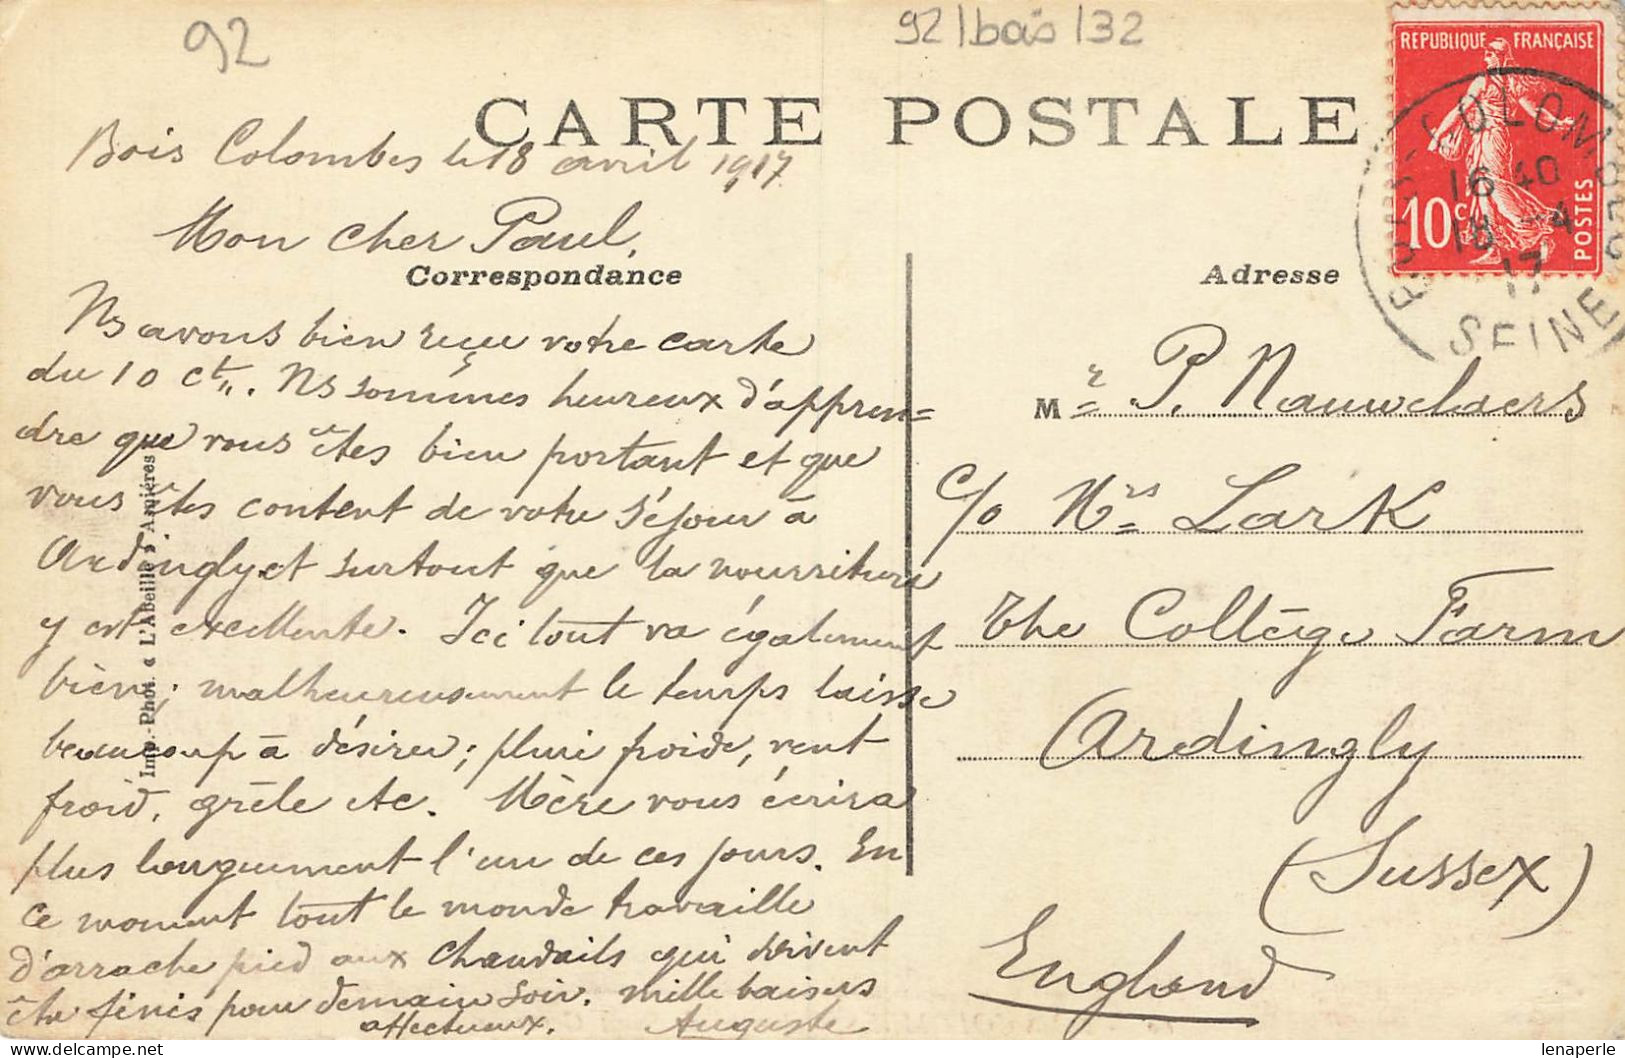 92
92 | bois | 32
CARTE POSTALE
REPUBLIQUE FRANÇAISE
10c POSTES
BOIS-COLOMBES
16 40
18 -4
17
SEINE
Bois Colombes le 18 avril 1917
Mon cher Paul,
Correspondance
Ns avons bien reçu votre carte
du 10 ct. Ns sommes heureux d'appren=
dre que vous êtes bien portant et que
vous êtes content de votre séjour à
Ardingly et surtout que la nourriture
y est excellente. Ici tout va également
bien; malheureusement le temps laisse
beaucoup à désirer; pluie froide, vent
froid, grêle etc. Mère vous écrira
plus longuement l'un de ces jours. En
ce moment tout le monde travaille
d'arrache pied aux chandails qui doivent
être finis pour demain soir. Mille baisers
affectueux. Auguste
Imp.-Phot. « L'Abeille » Asnières
Adresse
Mr P. Nauwelaers
c/o Mrs Lark
The Collège Farm
Ardingly
(Sussex)
England
lenaperle